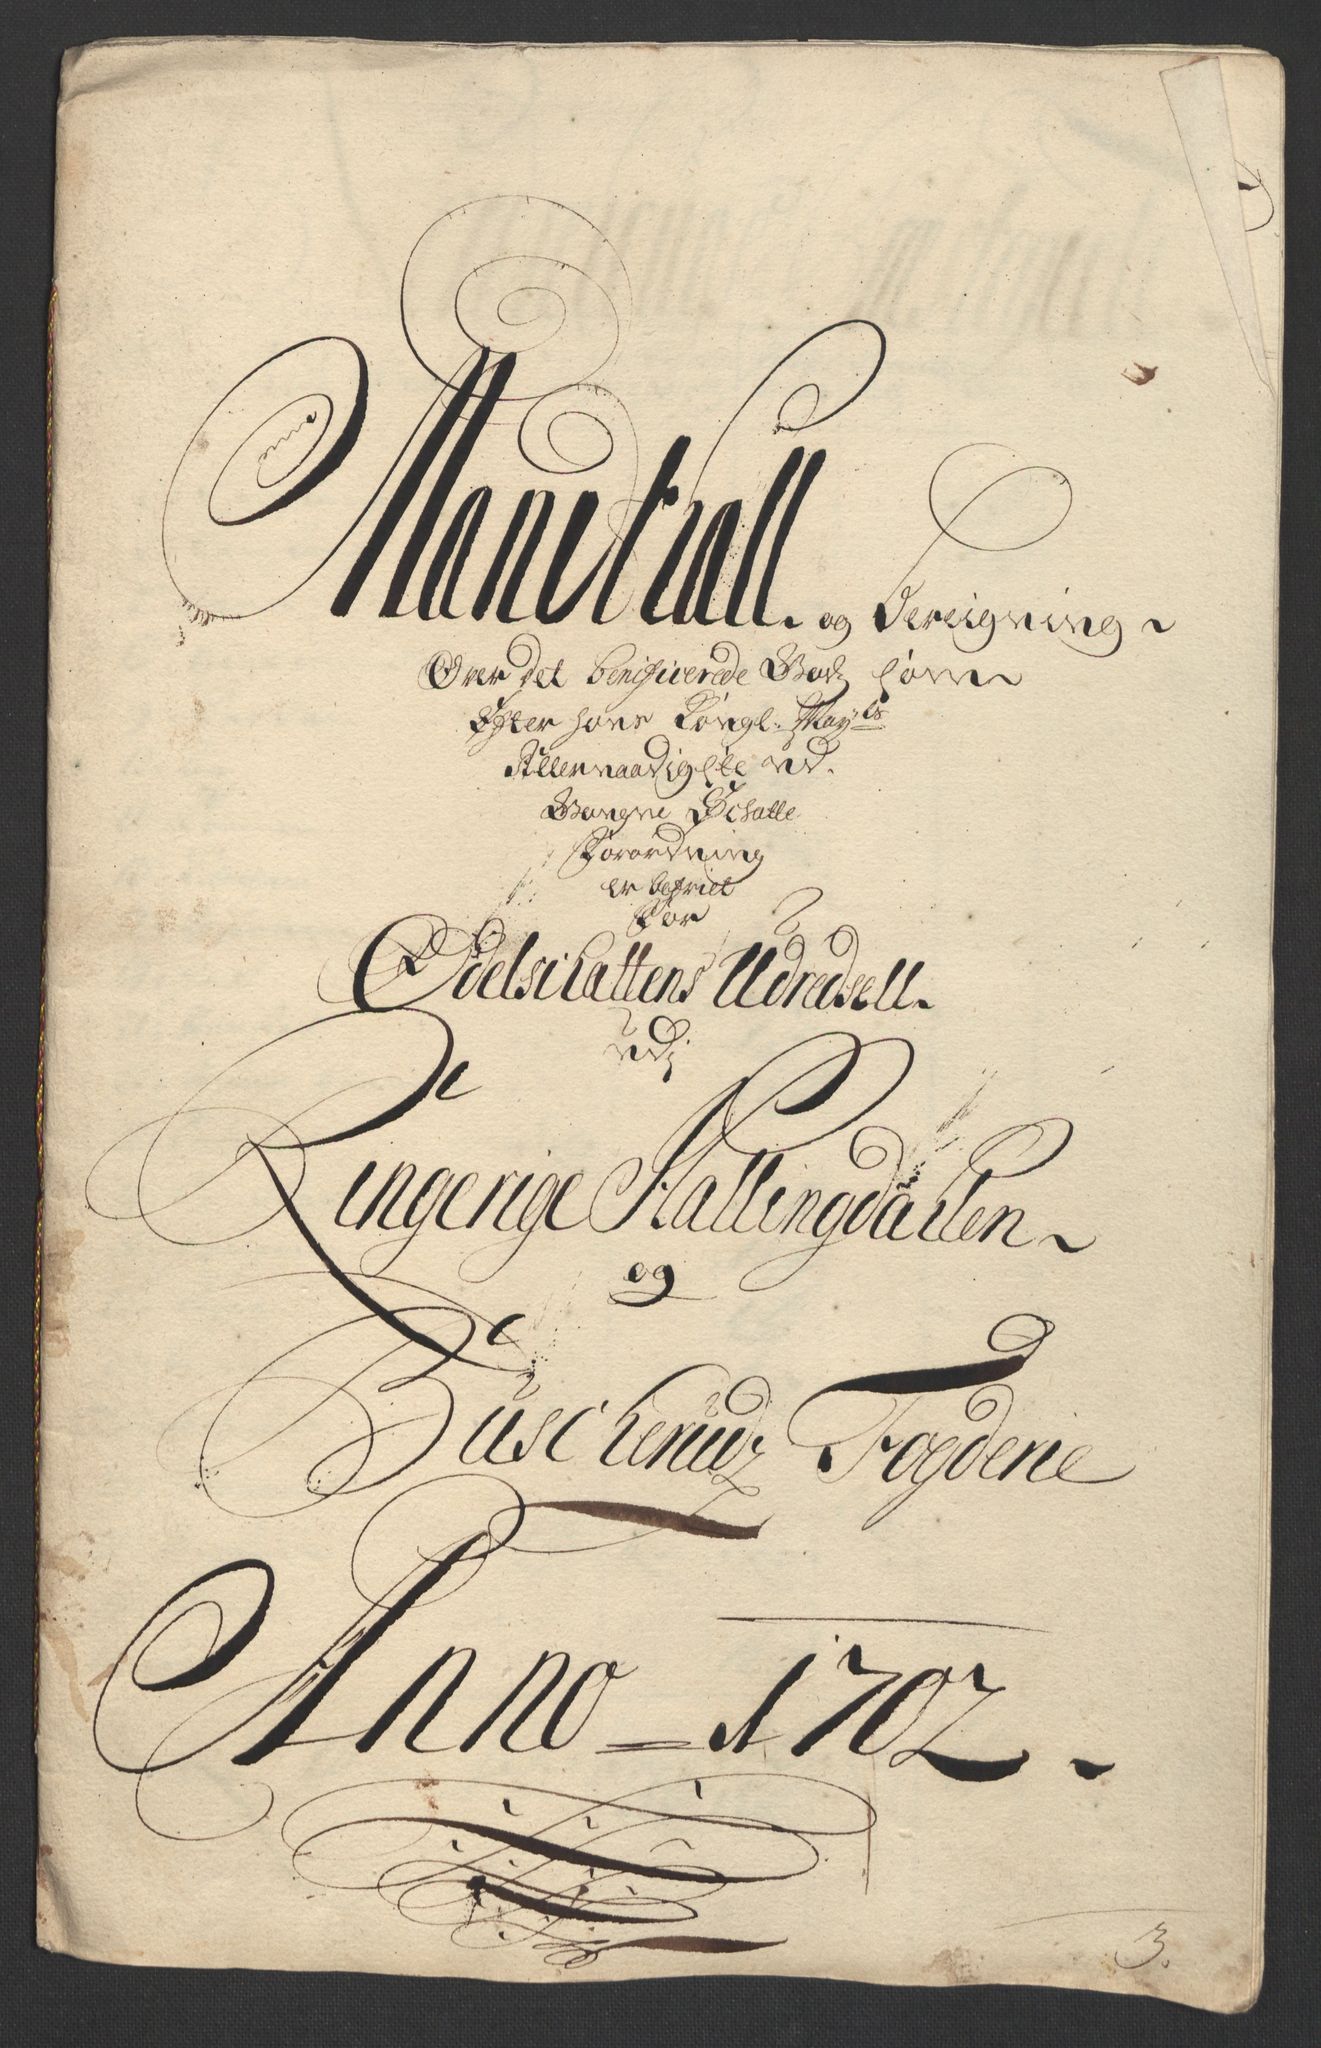 Mandtall og Bereigning
Over det benificerede Godz som
Efter hans Kongl: May:ts
Allernaadigste ud-
Gangne Schatte
Forordning
er befriet
For
Odelschattens Udredsell
udj
Ringerige Hallingdahlen
og
Buscheruds Fogderie
Anno 1702
3.